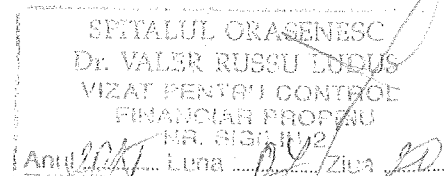 SPITALUL ORASENESC
Dr. VALER RUSSU LUDUS
VIZAT PENTRU CONTROL
FINANCIAR PROPRIU
NR. SIGILIU 2
Anul Luna Ziua